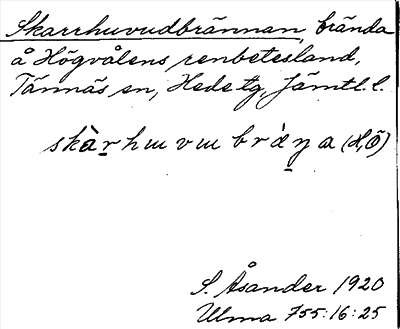 Skarrhuvudbrännan, brända
å Högvålens renbetesland,
Tännäs sn, Hede tg, Jämtl. l.
skàr̲hɯvɯbrὰŋ̲a (H,Ö)
S. Åsander 1920
Ulma 755:16:25